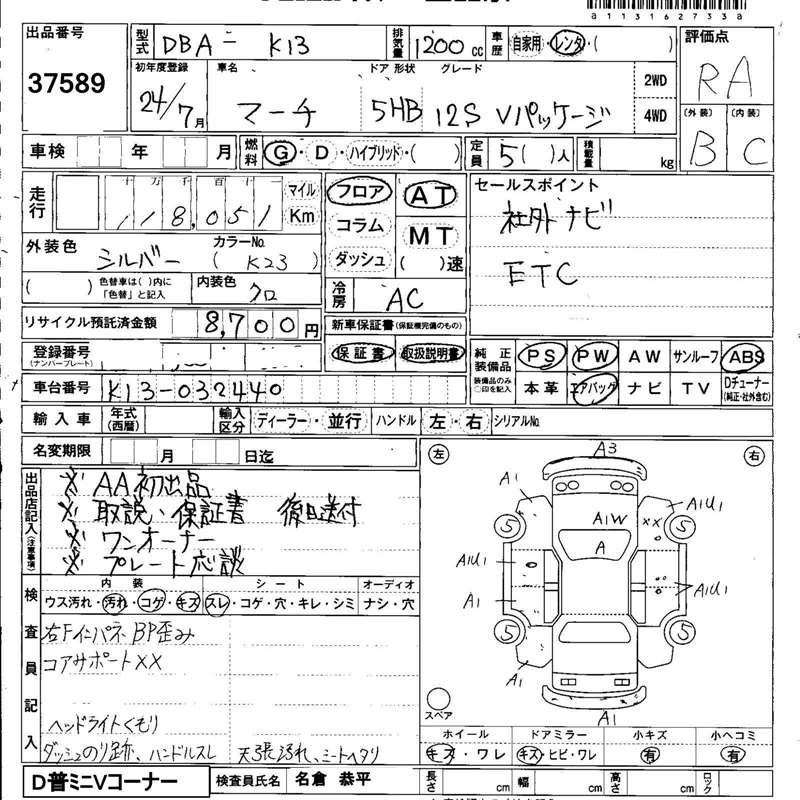 a11316273 3a
出品番号
37589
型式 DBA-K13
排気量 1200 cc
車歴 自家用・レンタ・( )
評価点
RA
初年度登録 車名 ドア 形状 グレード
24/7月 マーチ 5HB 12S Vパッケージ
2WD
4WD
(外装) (内装)
B C
車検 年 月
燃料 G・D・ハイブリッド・( )
定員 5( )人
積載量 kg
走行
十万千百十一
118,051
マイル
Km
フロア
コラム
ダッシュ
AT
MT
( )速
セールスポイント
社外ナビ
ETC
外装色 シルバー
カラーNo.
( K23 )
( )
色替車は( )内に
「色替」と記入
内装色
クロ
冷房 AC
リサイクル預託済金額 8,700円
新車保証書(保証継完備のもの)
保証書 取扱説明書
登録番号
(ナンバープレート)
純正装備品
装備品のみ○印を記入
PS PW AW サンルーフ ABS
本革 エアバッグ ナビ TV Dチューナー
(純正・社外含む)
車台番号 K13-032440
輸入車 年式(西暦) 輸入区分 ディーラー・並行 ハンドル 左・右 シリアルNo.
名変期限 月 日迄
出品店記入(注意事項)
※ AA初出品
※ 取説・保証書 後日送付
※ ワンオーナー
※ プレート応談
検査員記入
内装 シート オーディオ
ウス汚れ・汚れ・コゲ・キズ スレ・コゲ・穴・キレ・シミ ナシ・穴
右Fインパネ BP歪み
コアサポートXX
ヘッドライトくもり
ダッシュのり跡、ハンドルスレ 天張汚れ、シートヘタリ
左 右
A3
A1
A1U1
A1W
XX
5 5
A
A1U1
A1
A1U1
5 5
A1
A1
スペア
ホイール ドアミラー 小キズ 小ヘコミ
キズ・ワレ キズ・ヒビ・ワレ 有 有
D普ミニVコーナー
検査員氏名 名倉 恭平
長さ cm 幅 cm 高さ cm ロック